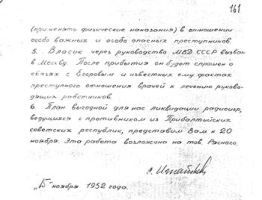 161
(применять физические наказания) в отношении
особо важных и особо опасных преступников
5. Власик через руководство МВД СССР вызван
в Москву. После прибытия он будет спрошен о
связях с Егоровым и известных ему фактах
преступного отношения врачей к лечению руково-
дящих работников
6. План выгодной для нас ликвидации радиоигр,
ведущихся с противником из Прибалтийских
советских республик, представим Вам к 20
ноября. Эта работа возложена на тов.
"15" ноября 1952 года.